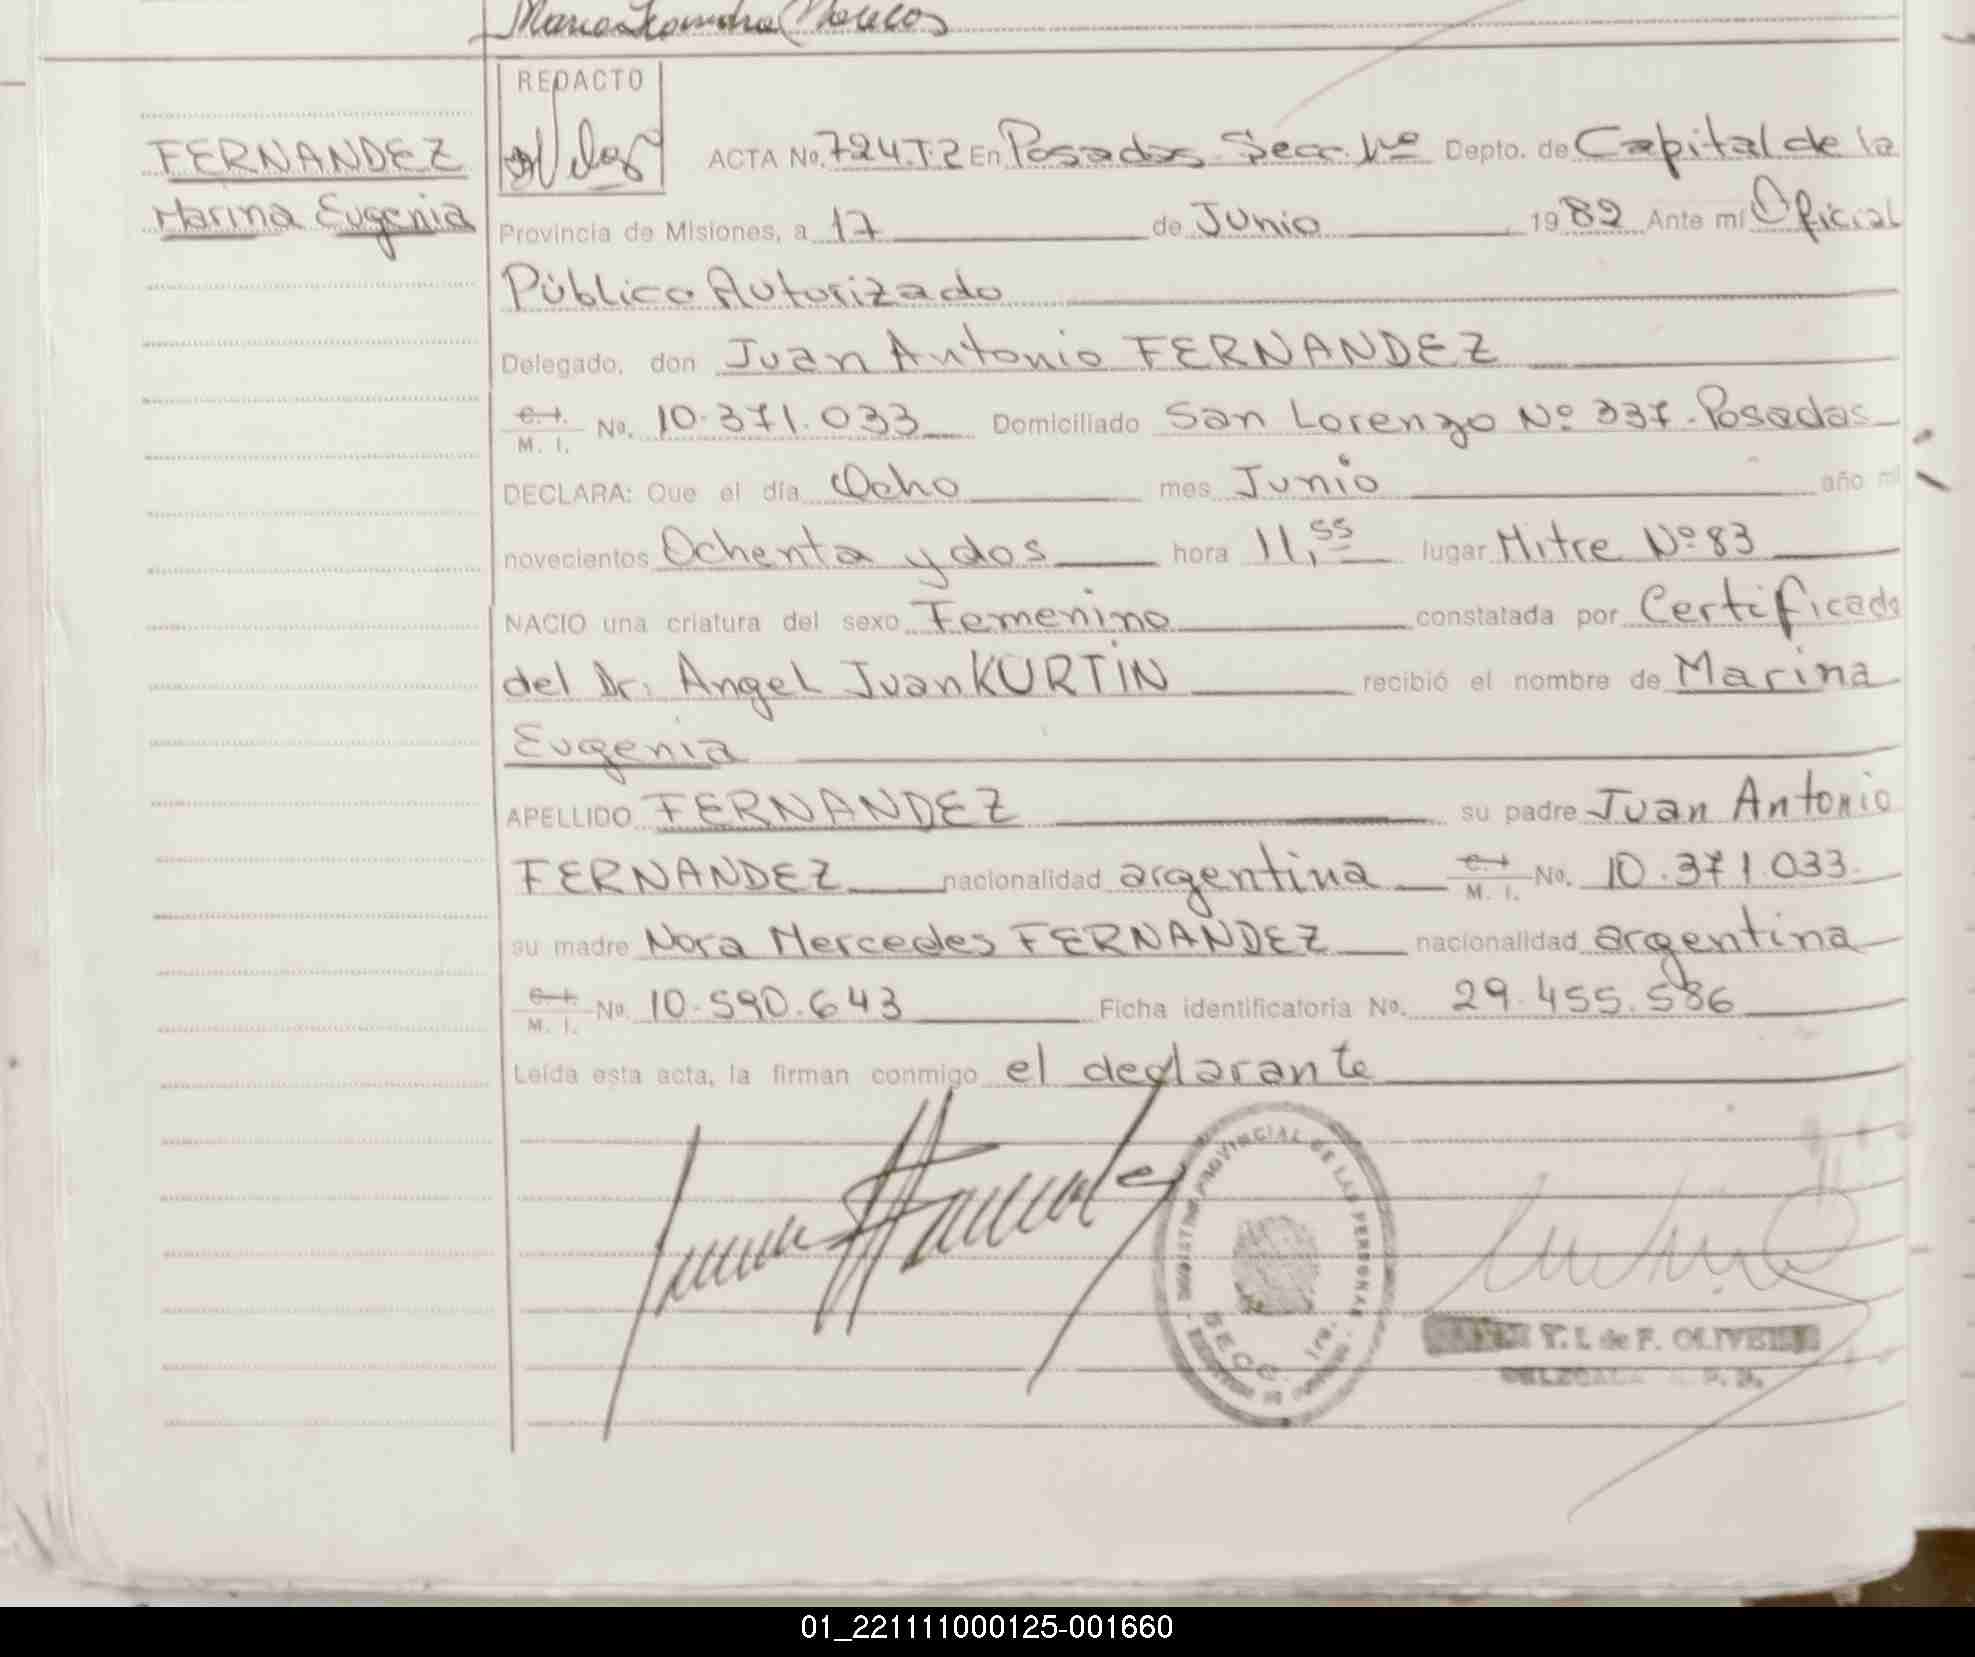 REDACTO
FERNANDEZ
Marina Eugenia
ACTA No. 724.T.2 En Posadas Secc. 1ª Depto. de Capital de la
Provincia de Misiones, a 17 de Junio 1982 Ante mí Oficial
Público Autorizado
Delegado, don Juan Antonio FERNANDEZ
C. I. M. I. No. 10.371.033 Domiciliado San Lorenzo Nº 337. Posadas
DECLARA: Que el día Ocho mes Junio año mil
novecientos Ochenta y dos hora 11,55 lugar Mitre Nº 83
NACIO una criatura del sexo Femenino constatada por Certificado
del Dr. Angel Juan KURTIN recibió el nombre de Marina
Eugenia
APELLIDO FERNANDEZ su padre Juan Antonio
FERNANDEZ nacionalidad argentina C. I. M. I. No. 10.371.033.
su madre Nora Mercedes FERNANDEZ nacionalidad argentina
C. I. M. I. No. 10.590.643 Ficha identificatoria No. 29.455.586
Leída esta acta, la firman conmigo el declarante
PROVINCIAL DE LAS PERSONAS
SECC. 1ra.
T. I. de F. OLIVEIRA
01_221111000125-001660